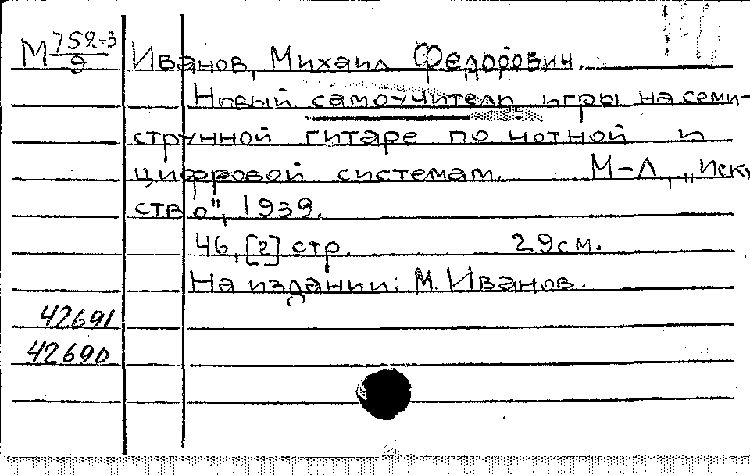 М 752-3/9 Иванов, Михаил Федорович.
Новый самоучитель игры на семи-
струнной гитаре по нотной и
цифровой системам. М-Л, „Иск-
ство", 1939.
46, [2] стр. 29 см.
На издании: М. Иванов.
42691
42690